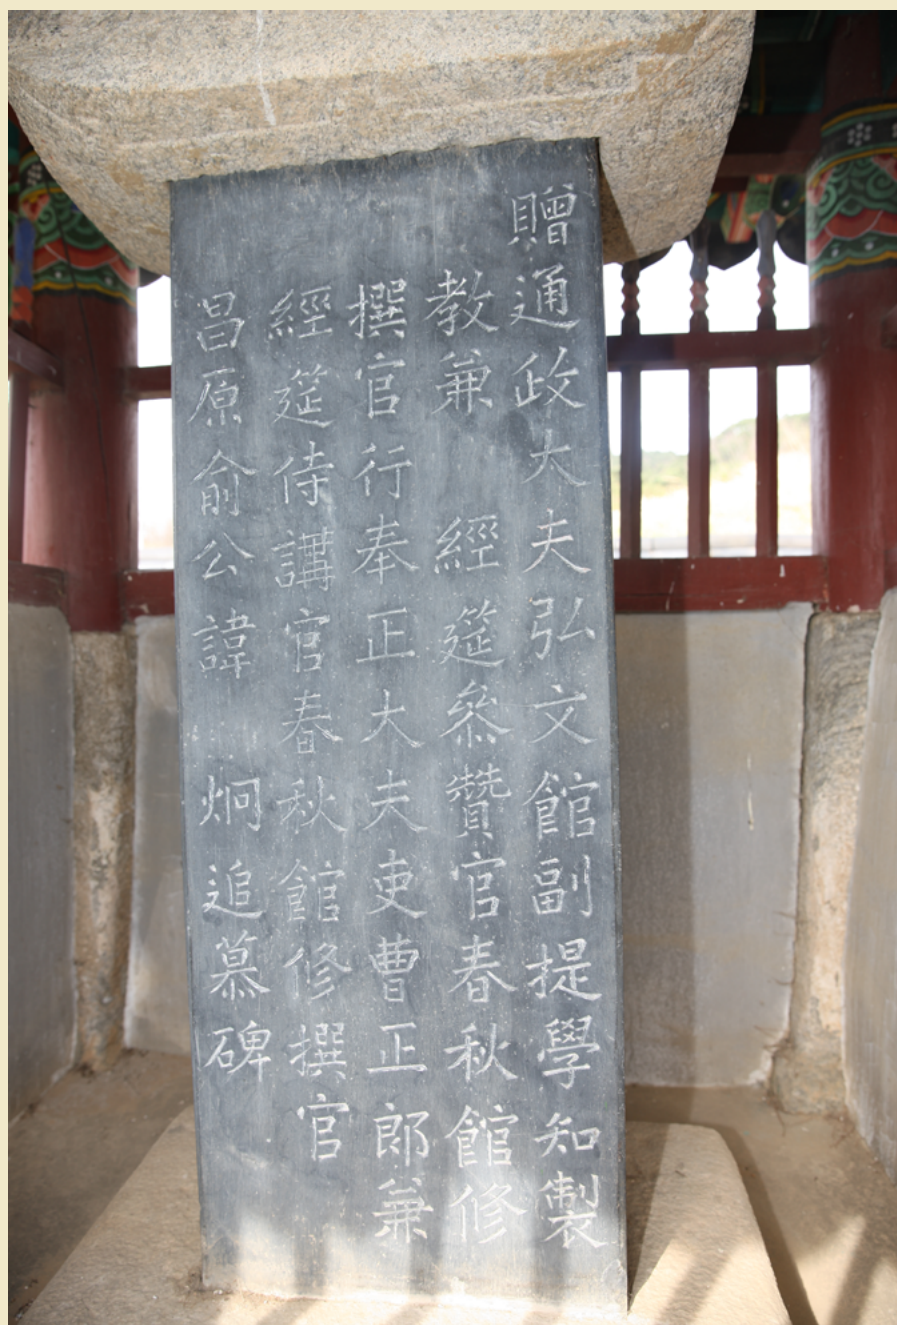 贈通政大夫弘文館副提學知製
教兼 經筵參贊官春秋館修
撰官行奉正大夫吏曹正郎兼
經筵侍講官春秋館修撰官
昌原俞公諱 炯追慕碑